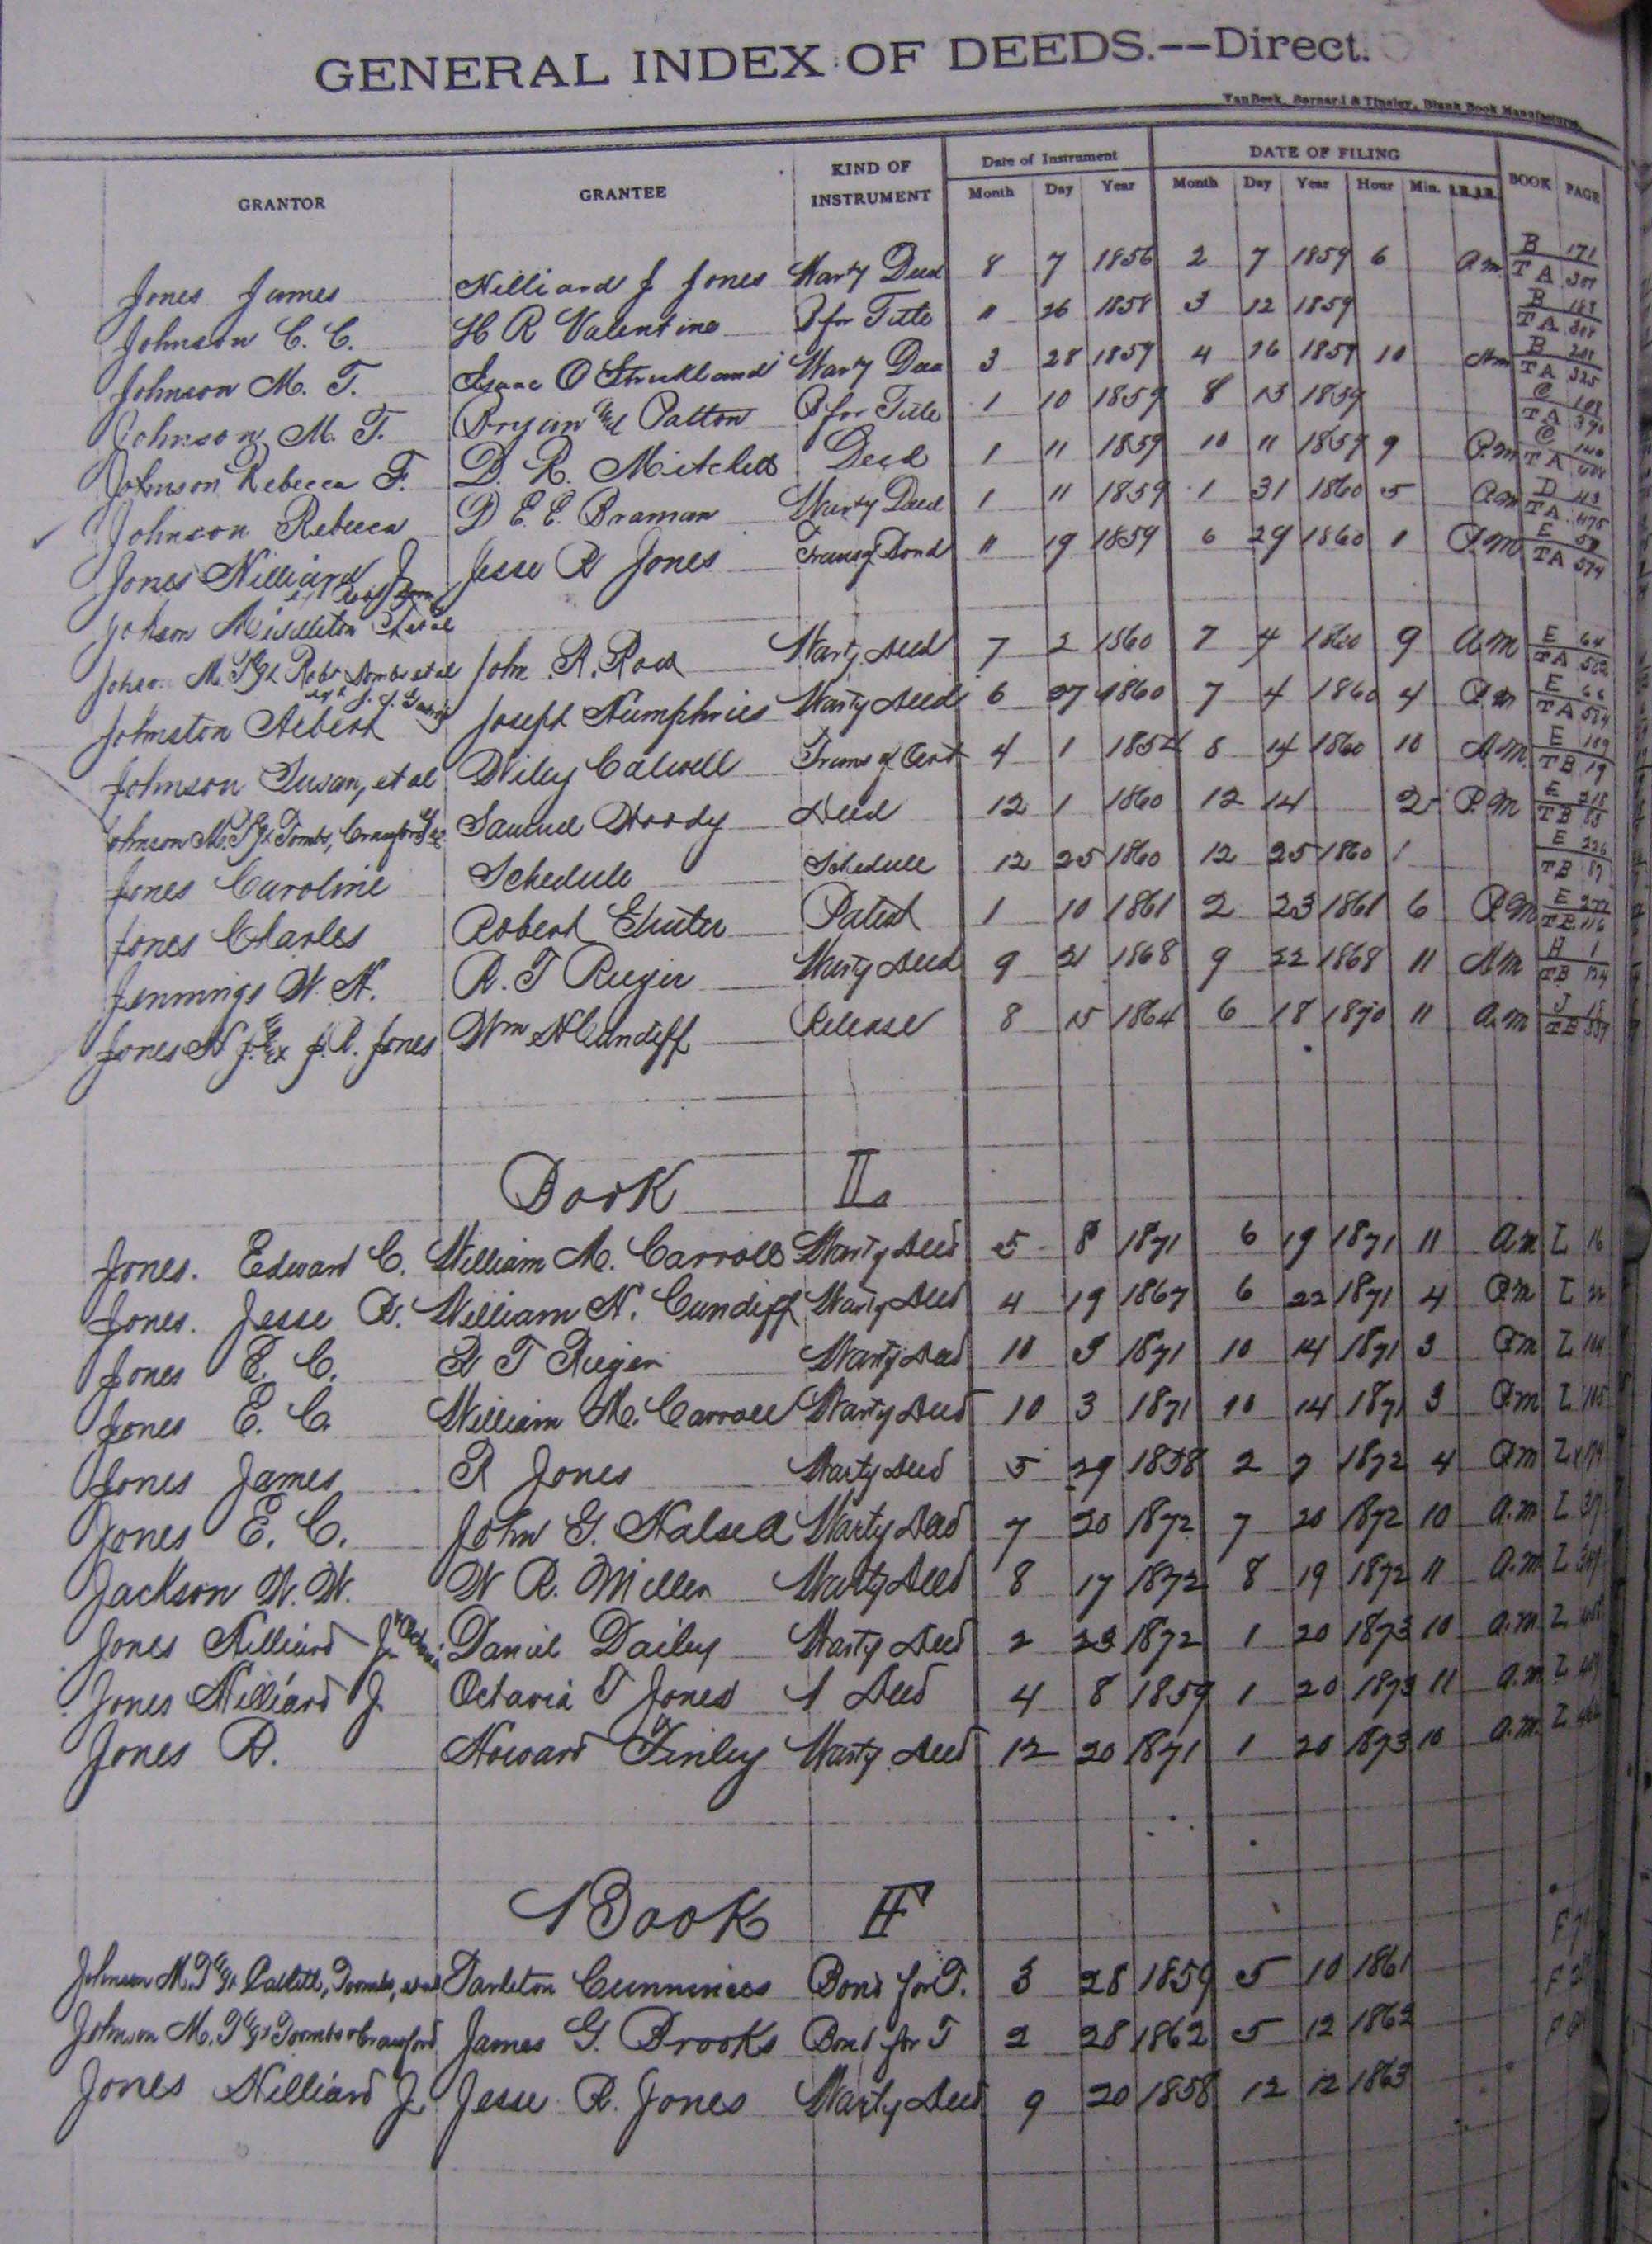 GENERAL INDEX OF DEEDS.--Direct.
VanBeek, Barnard & Tinsley, Blank Book Manufacturers
GRANTOR GRANTEE KIND OF INSTRUMENT Date of Instrument DATE OF FILING BOOK PAGE
Month Day Year Month Day Year Hour Min.
Jones James Hilliard J Jones Warty Deed 8 7 1856 2 7 1859 6 a.m B 171 TA 307
Johnson C. C. H R Valentine B for Title " 26 1858 3 12 1859 B TA
Johnson M. T. Isaac O Strickland Warty Deed 3 28 1859 4 16 1859 10 Am B TA 325
Johnson M. T. Bryan Patton B for Title 1 10 1859 8 13 1859 C 108 TA 390
Johnson Rebecca F. D. R. Mitchell Deed 1 11 1859 10 11 1859 9 P.m C TA
Johnson Rebecca D E. E. Braman Warty Deed 1 11 1859 1 31 1860 5 P.m D TA 475
Jones Hilliard J Jesse R Jones Transf Bond " 19 1859 6 29 1860 1 P.M E TA 574
Johson Middleton T et al
Johson M. T. Robt et al John R. Rock Warty Deed 7 2 1860 7 4 1860 9 A.M E 64 TA 582
Johnston Albert Joseph Humphries Warty Deed 6 27 1860 7 4 1860 4 P.M E 66 TA 584
Johnson Susan, et al Wiley Calwell Trans of Cert 4 1 1854 8 14 1860 10 A.M. E 109 TB 19
Johnson M. T. Tombs, Crawford Samuel Woody Deed 12 1 1860 12 14 2 P.M E 218 TB 85
Jones Caroline Schedule Schedule 12 25 1860 12 25 1860 1 E 226 TB 87
Jones Charles Robert Shuter Patent 1 10 1861 2 23 1861 6 P.M E 277 TB 116
Jennings W. H. R. T Rieger Warty Deed 9 21 1868 9 22 1868 11 AM H 1 TB 124
Jones H J. J. R. Jones Wm H Cundiff Release 8 15 1864 6 18 1870 11 a.m J 18 TB
Book II.
Jones. Edward C. William M. Carroll Warty Deed 5 8 1871 6 19 1871 11 a.m L 16
Jones. Jesse R. William H. Cundiff Warty Deed 4 19 1867 6 22 1871 4 P.m L 22
Jones E. C. R T Rieger Warty Deed 10 3 1871 10 14 1871 3 P.m L 104
Jones E. C. William M. Carroll Warty Deed 10 3 1871 10 14 1871 3 P.m L 105
Jones James R Jones Warty Deed 5 29 1858 2 7 1872 4 P.m L
Jones E. C. John G. Halsell Warty Deed 7 20 1872 7 20 1872 10 a.m L
Jackson W. W. W R. Miller Warty Deed 8 17 1872 8 19 1872 11 a.m L
Jones Hilliard J Daniel Dailey Warty Deed 2 23 1872 1 20 1873 10 a.m L
Jones Hilliard J. Octavia T Jones Deed 4 8 1859 1 20 1873 11 a.m L
Jones R. Howard Finley Warty Deed 12 20 1871 1 20 1873 10 a.m. L
Book F
Johnson M. T. Catlett, Toombs, et al Tarleton Cummines Bond for T. 3 28 1859 5 10 1861 F
Johnson M. T Toombs & Crawford James G. Brooks Bond for T 2 28 1862 5 12 1862 F
Jones Hilliard J. Jesse R. Jones Warty Deed 9 20 1858 12 12 1863 F